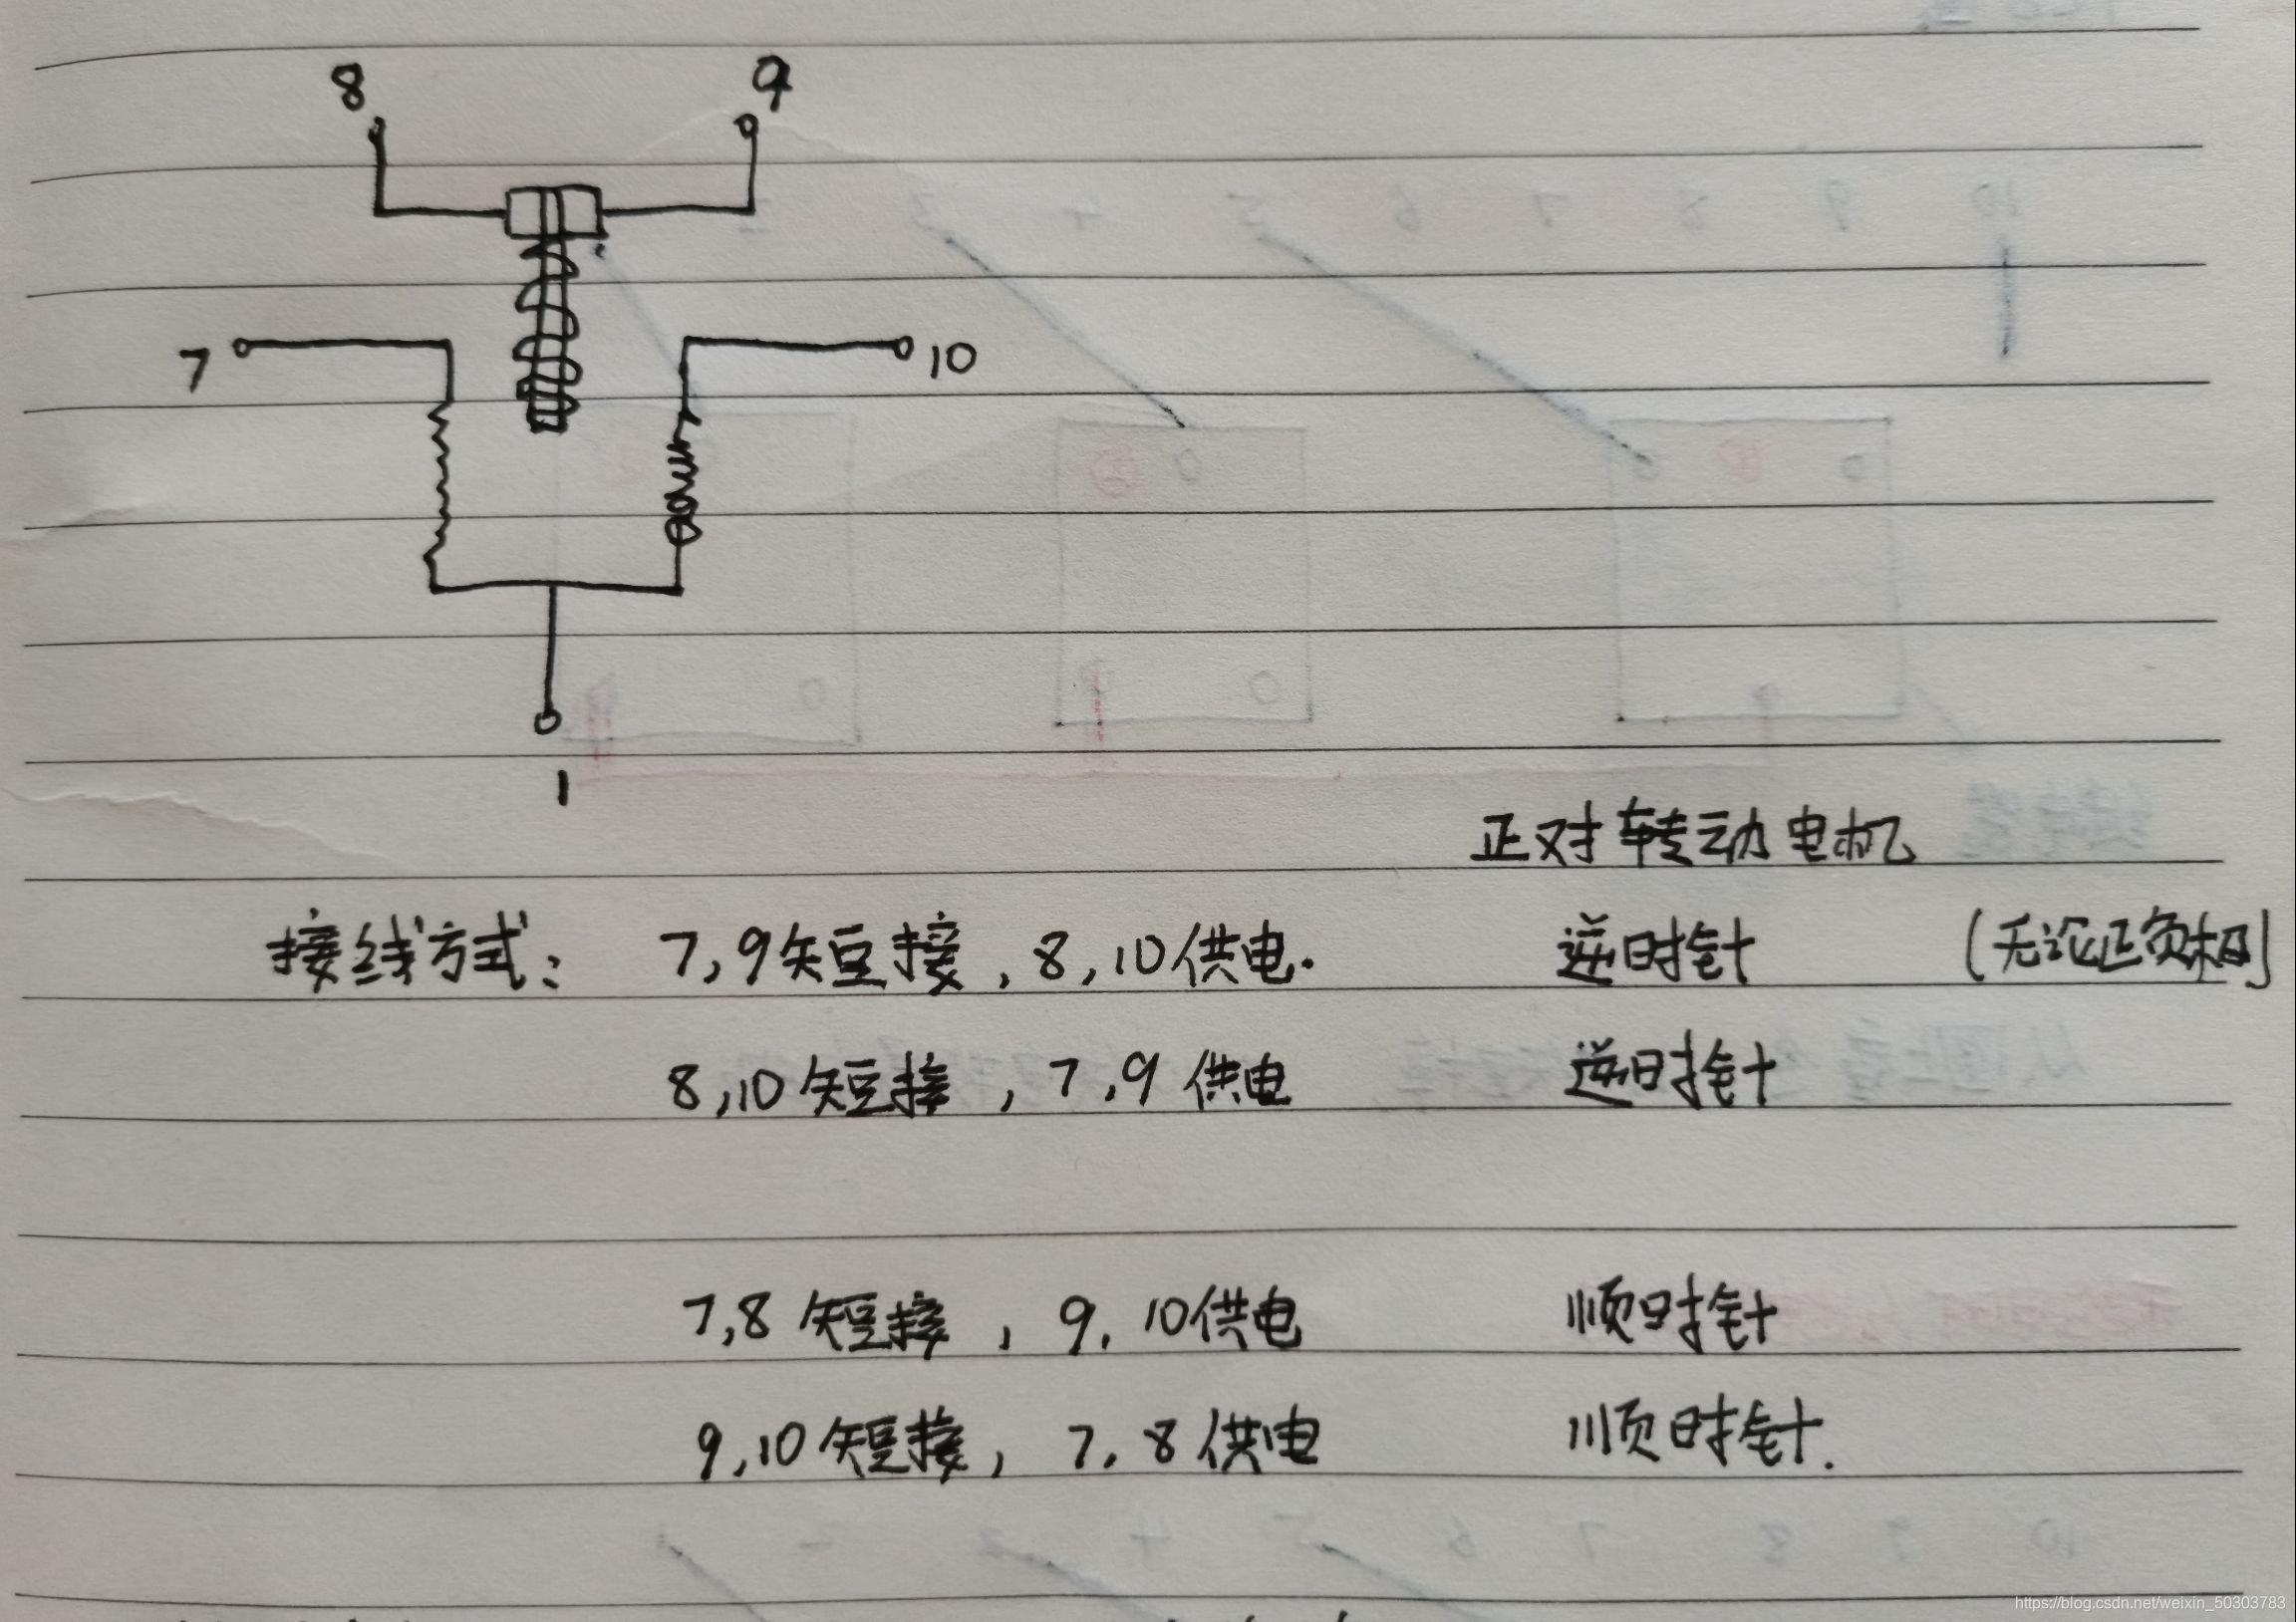 8 9
7 10
1
正对转动电机
接线方式: 7,9短接,8,10供电. 逆时针 (无论正负相)
8,10短接,7,9供电 逆时针
7,8短接,9,10供电 顺时针
9,10短接,7,8供电 顺时针.
https://blog.csdn.net/weixin_50303783